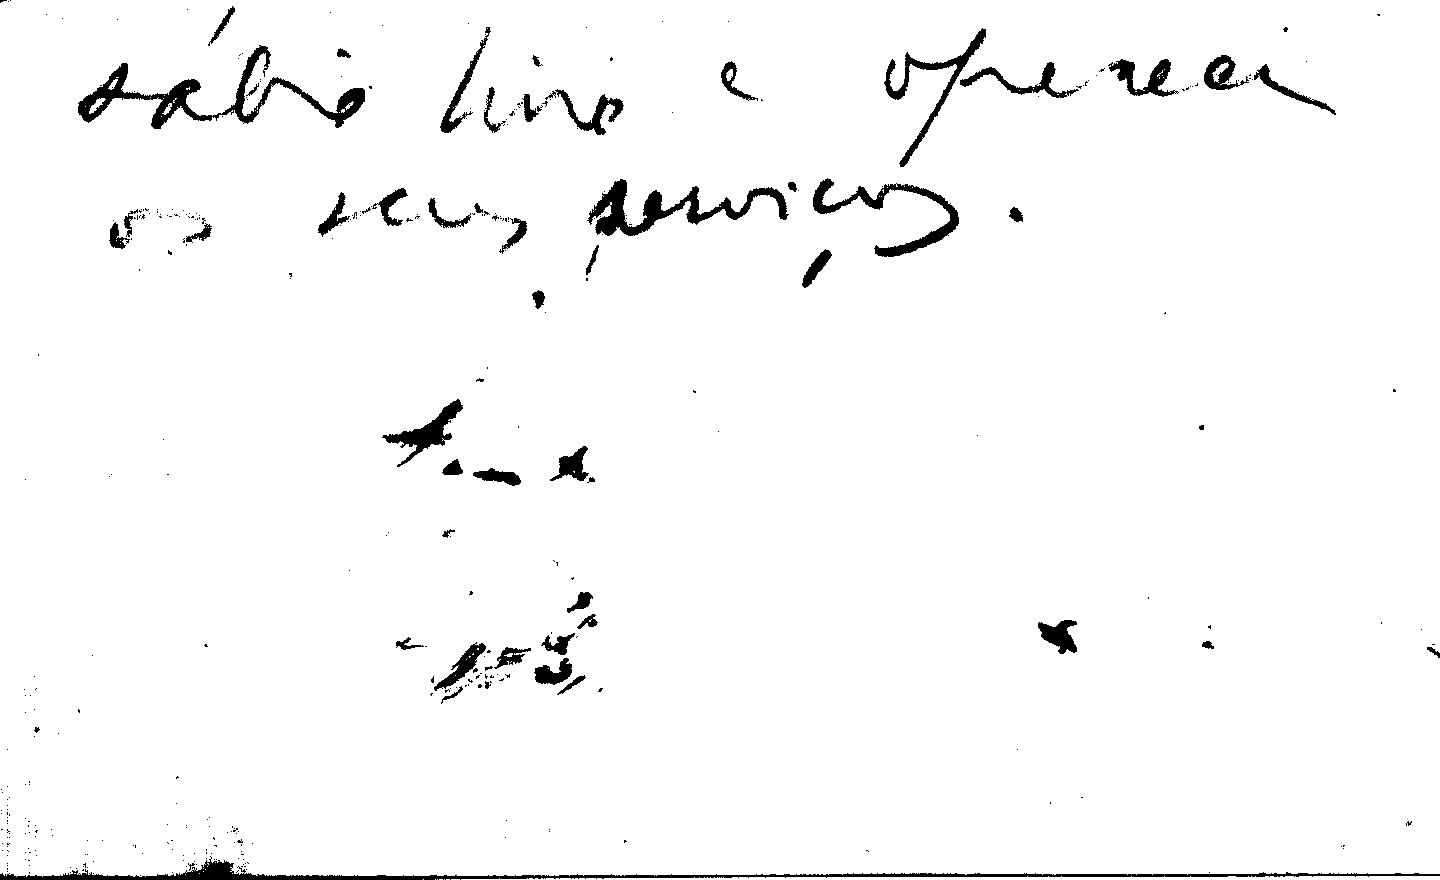 sábio livro e oferecei
os seus serviços.